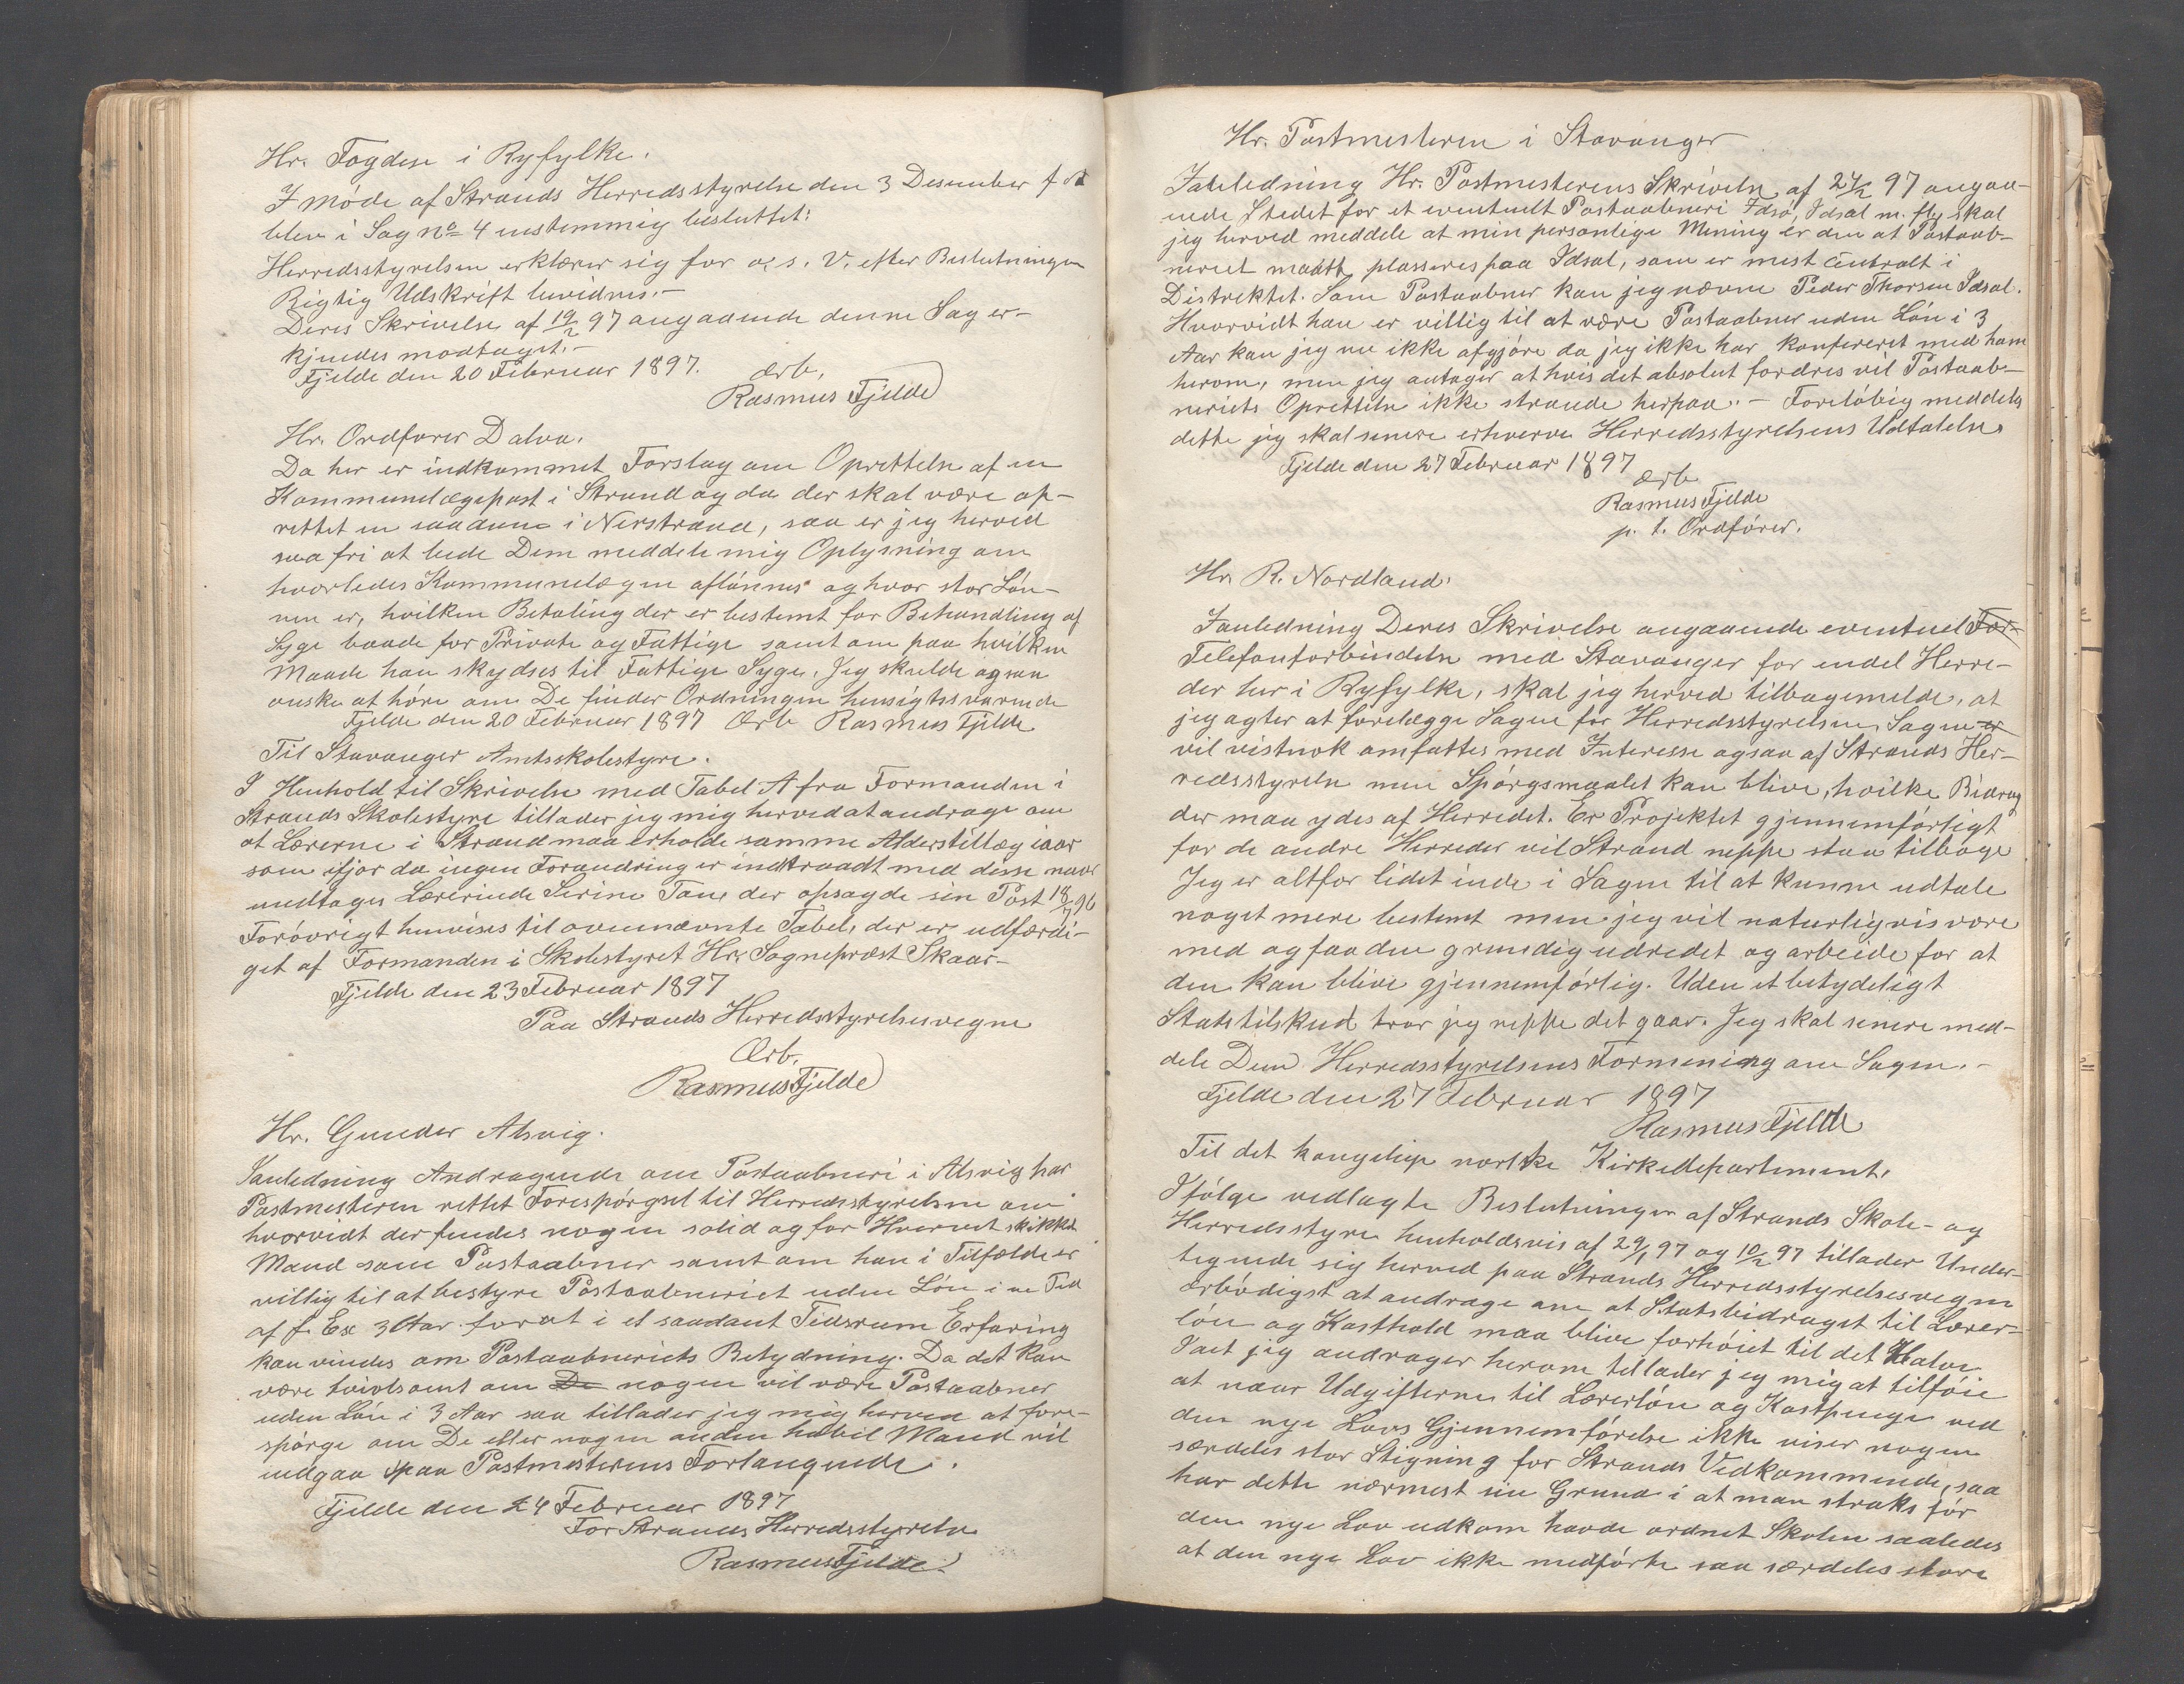 Hr. Fogden i Ryfylke.
I Møde af Strands Herredsstyrelse den 3 Desember f. A
blev i Sag No 4 enstemmig besluttet:
Herredsstyrelsen erklærer sig for o. s. v. efter Beslutningen
Rigtig Udskrift bevidnes.—
Deres Skrivelse af 19/2 97 angaaende denne Sag er-
kjendes modtaget.—
Fjelde den 20 Februar 1897. Ærb,
Rasmus Fjelde
Hr. Ordfører Dalva.
Da her er indkommet Forslag om Oprettelse af en
Kommunelægepost i Strand og da der skal være op-
rettet en saadan i Nerstrand, saa er jeg herved
saa fri at bede Dem meddele mig Oplysning om
hvorledes Kommunelægen aflønnes og hvor stor Løn-
nen er, hvilken Betaling der er bestemt for Behandling af
Syge baade for Private og Fattige samt om paa hvilken
Maade han skydses til Fattige Syge. Jeg skulde ogsaa
ønske at høre om De finder Ordningen hensigtssvarende
Fjelde den 20 Februar 1897 Ærb Rasmus Fjelde
Til Stavanger Amtsskolestyre.
I Henhold til Skrivelse med Tabel A fra Formanden i
Strands Skolestyre tillader jeg mig herved at andrage om
at Lærerne i Strand maa erholde samme Alderstillæg iaar
som ifjor da ingen Forandring er indtraadt med disse naar
undtages Lærerinde Serine Tou, der opsagde sin Post 18/7 96
Forøvrigt henvises til ovennævnte Tabel, der er udfærdi-
get af Formanden i Skolestyret Hr. Sogneprest Skaar—
Fjelde den 23 Februar 1897
Paa Strands Herredsstyrelsesvegne
Ærb.
Rasmus Fjelde
Hr. Gunder Alsvig.
Ianledning Andragende om Postaabneri i Alsvig har
Postmesteren rettet Forespørgsel til Herredsstyrelsen om
hvorvidt der findes nogen solid og for Hvervet skikket
Mand som Postaabner samt om han i Tilfælde er
villig til at bestyre Postaabneriet uden Løn i en Tid
af f. Ex 3 Aar forat i et saadant Tidsrum Erfaring
kan vindes om Postaabneriets Betydning. Da det kan
være tvivlsomt om De nogen vil være Postaabner
uden Løn i 3 Aar saa tillader jeg mig herved at fore-
spørge om De eller nogen anden habil Mand vil
indgaa paa Postmesterens Forlangende.
Fjelde den 24 Februar 1897
For Strands Herredsstyrelse
Rasmus Fjelde
Hr. Postmesteren i Stavanger
Ianledning Hr. Postmesterens Skrivelse af 24/2 97 angaa-
ende Stedet for et eventuelt Postaabneri Idsø, Idsal m. fl. skal
jeg herved meddele at min personlige Mening er den at Postaab-
neriet maatte plasseres paa Idsal, som er mest centralt i
Distriktet. Som Postaabner kan jeg nævne Peder Thorsen Idsal.
Hvorvidt han er villig til at være Postaabner uden Løn i 3
Aar kan jeg nu ikke afgjøre da jeg ikke har konfereret med ham
herom, men jeg antager at hvis det absolut fordres vil Postaab-
neriets Oprettelse ikke strande herpaa.— Foreløbig meddeles
dette jeg skal senere erhverve Herredsstyrelsens Udtalelse.
Fjelde den 27 Februar 1897
Ærb
Rasmus Fjelde
p. t. Ordfører.
Hr. R. Nordland.
Ianledning Deres Skrivelse angaaende eventuel For-
Telefonforbindelse med Stavanger for endel Herre-
der her i Ryfylke, skal jeg herved tilbagemelde, at
jeg agter at forelægge Sagen for Herredsstyrelsen, Sagen er
vil vistnok omfattes med Interesse ogsaa af Strands Her-
redsstyrelse men Spørgsmaalet kan blive, hvilke Bidrag
der maa ydes af Herredet. Er Projektet gjennemførligt
for de andre Herreder vil Strand neppe staa tilbage
Jeg er altfor lidet inde i Sagen til at kunne udtale
noget mere bestemt men jeg vil naturligvis være
med og faa den grundig udredet og arbeide for at
den kan blive gjennemførlig. Uden et betydeligt
Statstilskud tror jeg neppe det gaar. Jeg skal senere med-
dele Dem Herredsstyrelsens Formening om Sagen.—
Fjelde den 27 Februar 1897
Rasmus Fjelde
Til det kongelige norske Kirkedepartement.
Ifølge vedlagte Beslutninger af Strands Skole- og
Herredsstyre henholdsvis af 29/1 97 og 10/2 97 tillader Under-
tegnede sig herved paa Strands Herredsstyrelsesvegne
ærbødigst at andrage om at Statsbidraget til Lærer-
løn og Kosthold maa blive forhøiet til det Halve
Idet jeg andrager herom tillader jeg mig at tilføie
at naar Udgifterne til Lærerløn og Kostpenge ved
den nye Lovs Gjennemførelse ikke viser nogen
særdeles stor Stigning for Strands Vedkommende, saa
har dette nærmest sin Grund i at man straks før
den nye Lov udkom havde ordnet Skolen saaledes
at den nye Lov ikke medførte saa særdeles store